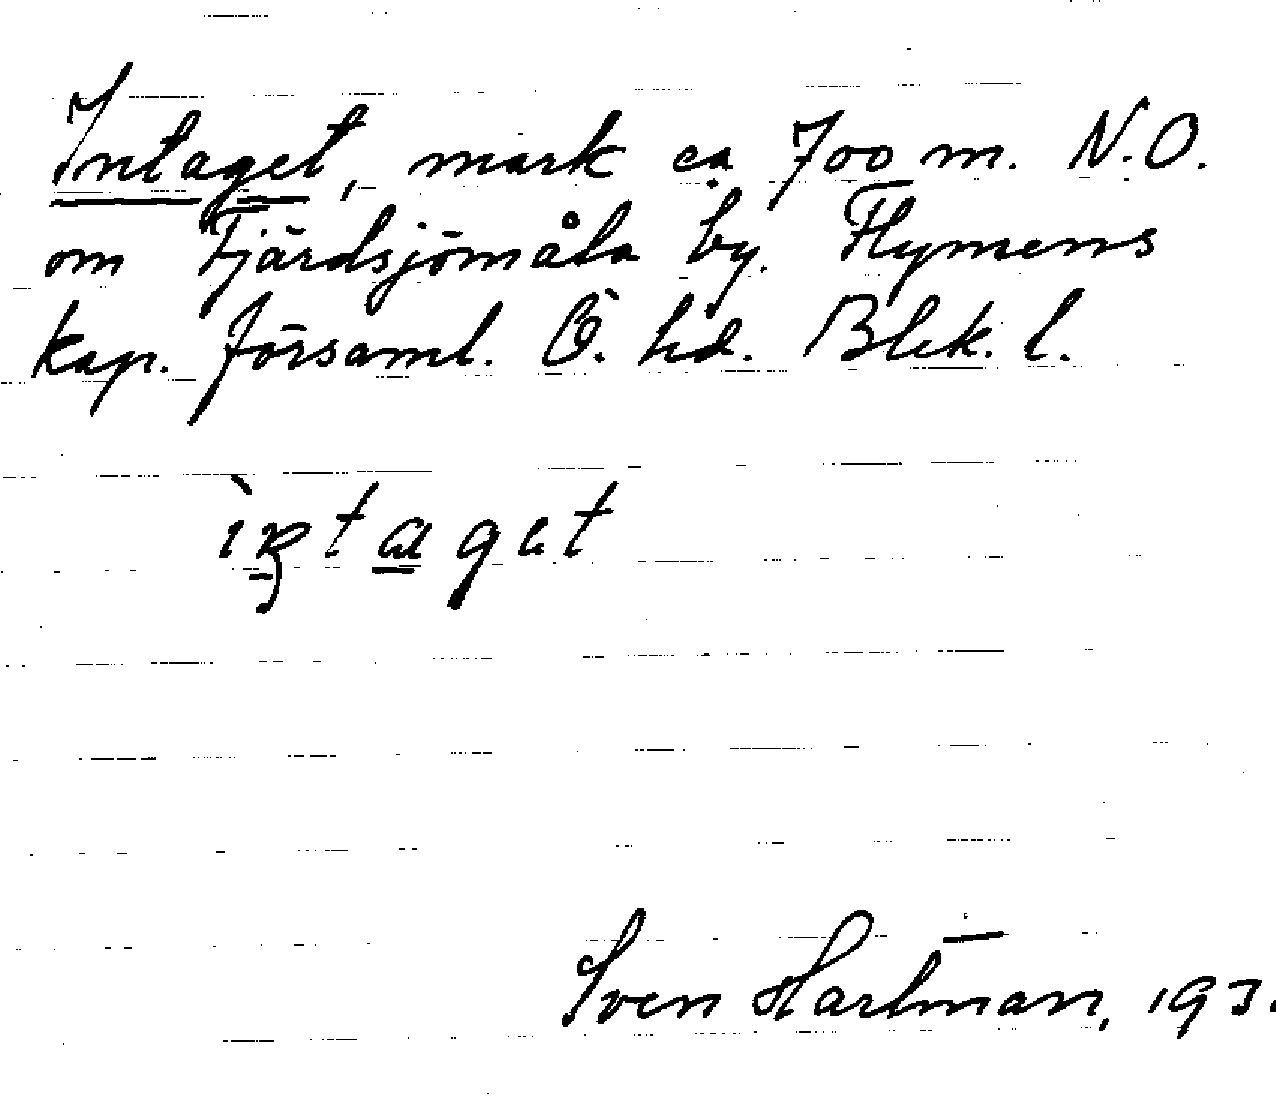 Intaget, mark ca 700 m. N.O.
om Fjärdsjömåla by. Flymens
kap. församl. Ö. hd. Blek. l.
ìntaget
Sven Hartman,